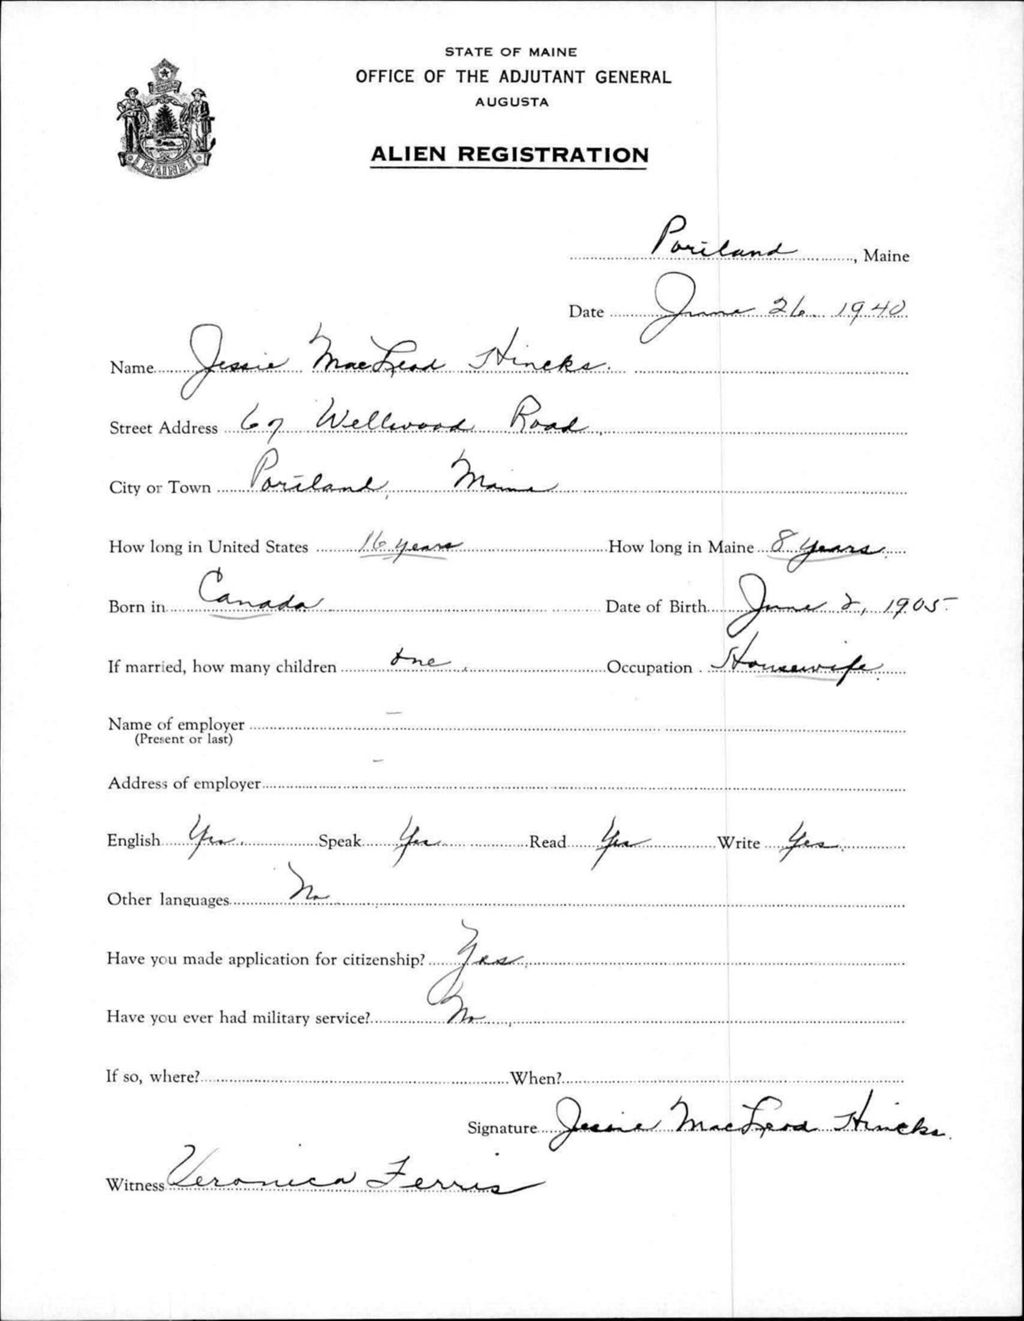 STATE OF MAINE
OFFICE OF THE ADJUTANT GENERAL
AUGUSTA
ALIEN REGISTRATION
MAINE
Portland, Maine
Date June 26 1940
Name Jessie MacLeod Hincks.
Street Address 67 Wellwood Road,
City or Town Portland, Maine
How long in United States 16 years How long in Maine 8 years.
Born in Canada Date of Birth June 2, 1905
If married, how many children One. Occupation Housewife.
Name of employer —
(Present or last)
Address of employer –
English Yes. Speak Yes Read Yes Write Yes.
Other languages No
Have you made application for citizenship? Yes.
Have you ever had military service? No
If so, where? When?
Signature Jessie MacLeod Hincks.
Witness Veronica Ferris